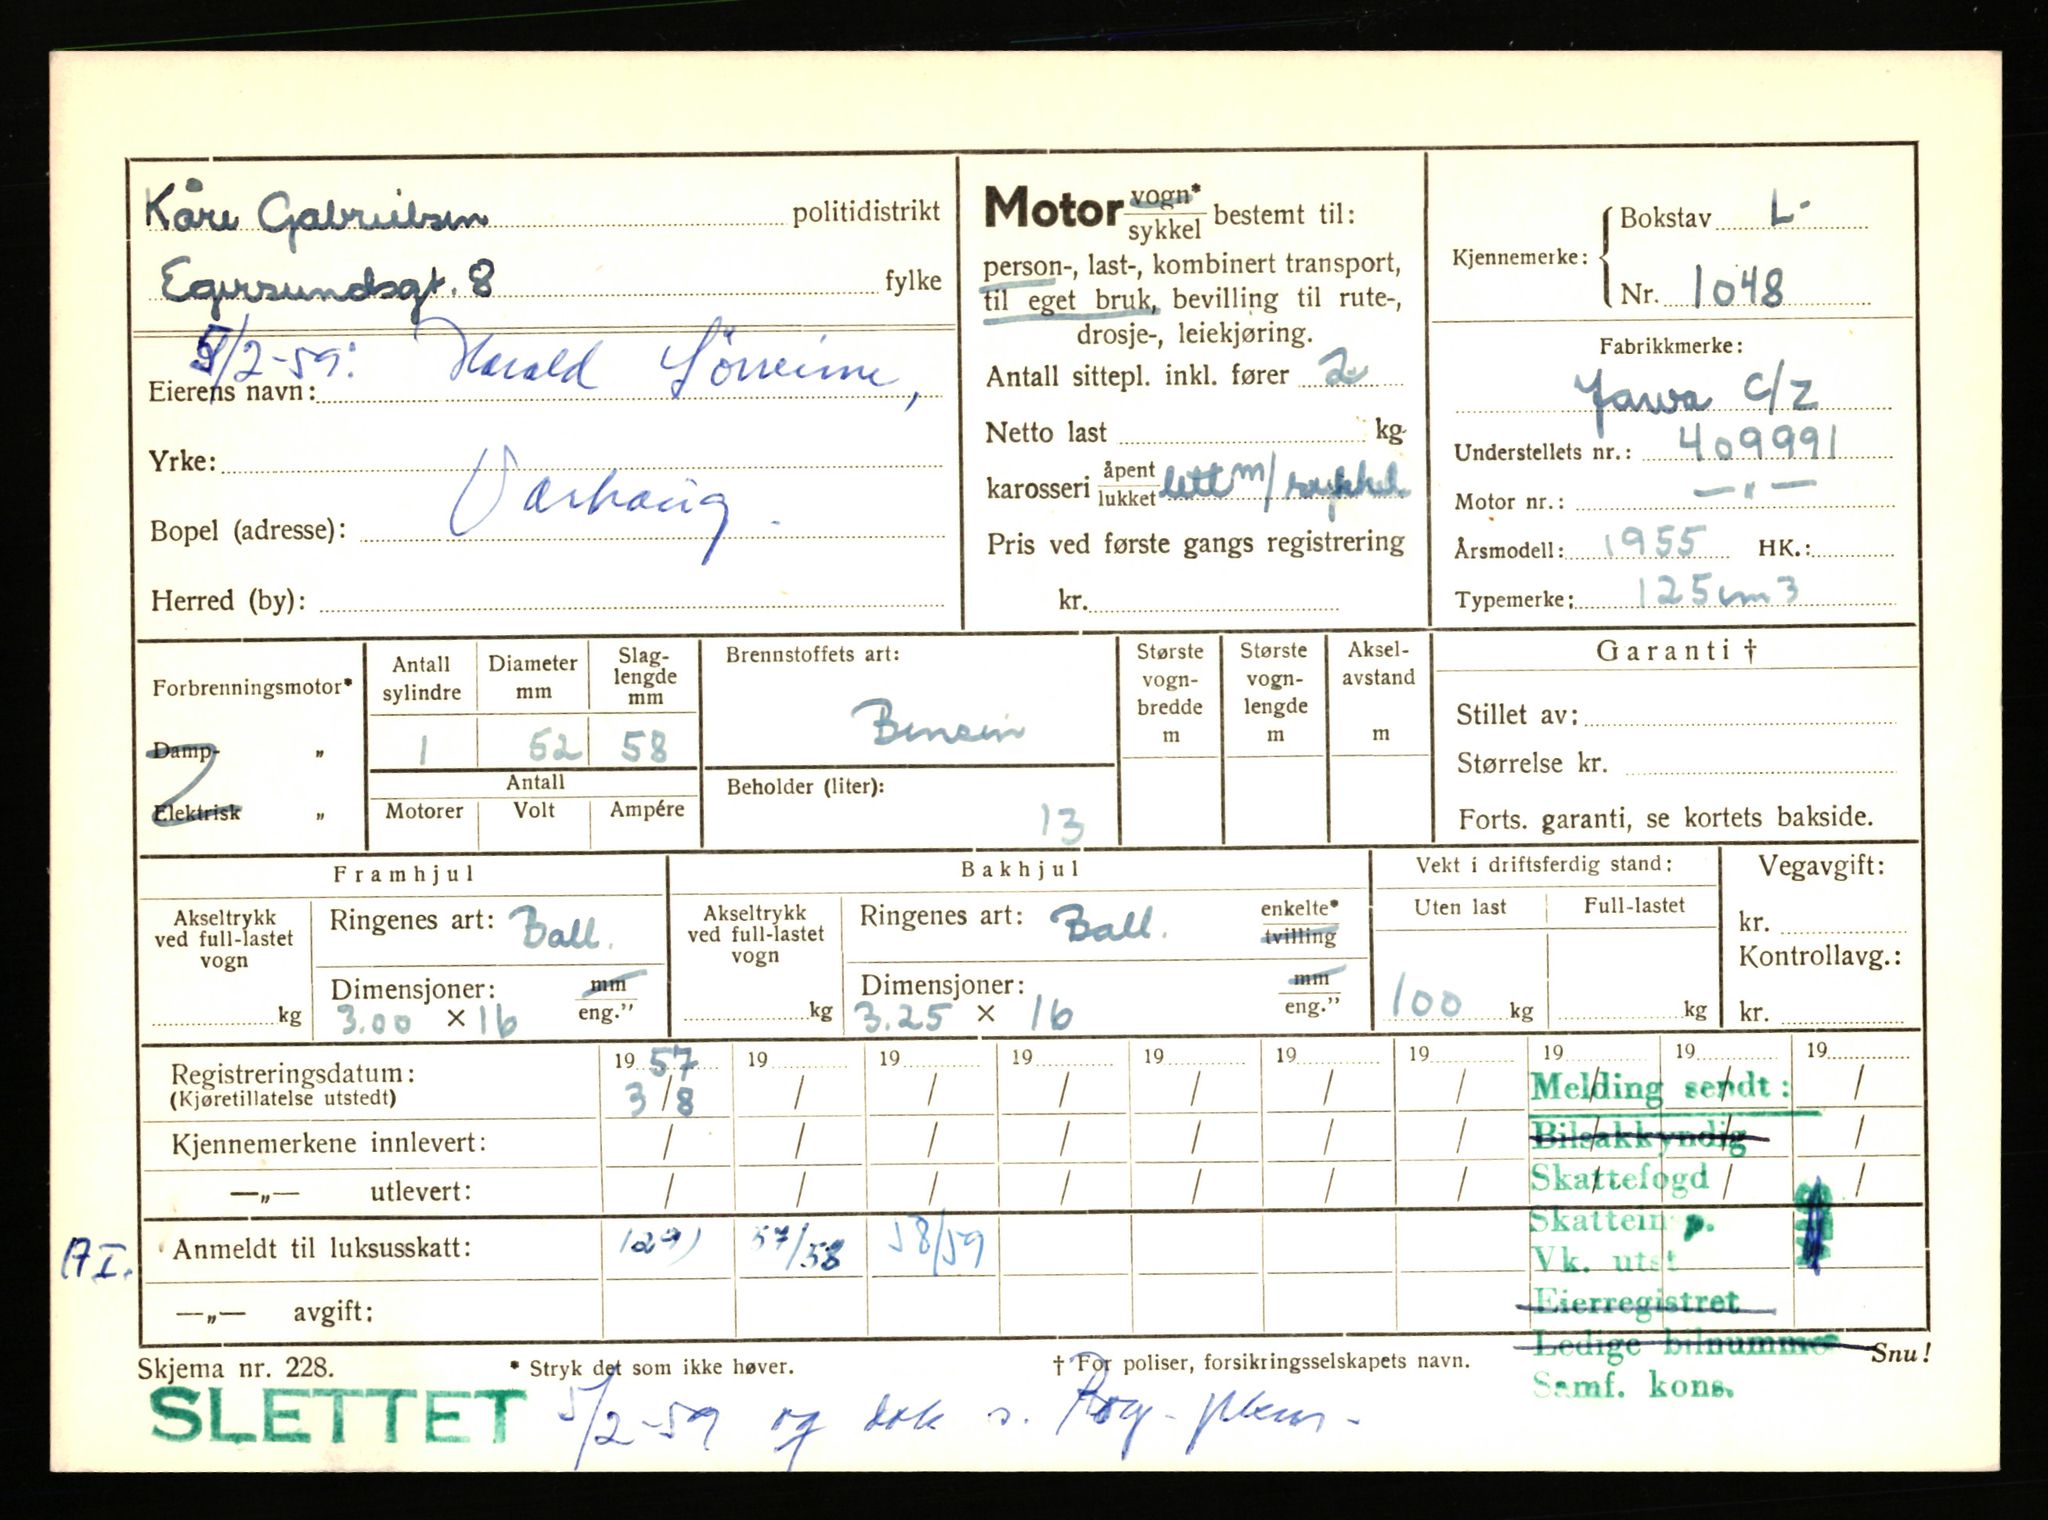 Kåre Gabrielsen politidistrikt
Egersundsgt. 8 fylke
5/2-59: Harald Sörreime,
Eierens navn:
Yrke:
Varhaug.
Bopel (adresse):
Herred (by):
Motor vogn* / sykkel bestemt til:
person-, last-, kombinert transport,
til eget bruk, bevilling til rute-,
drosje-, leiekjøring.
Antall sittepl. inkl. fører 2
Netto last kg
karosseri åpent / lukket lett m/sykkel
Pris ved første gangs registrering
kr.
Kjennemerke: Bokstav L-
Nr. 1048
Fabrikkmerke:
Jawa C/Z
Understellets nr.: 409991
Motor nr.: — " —
Årsmodell: 1955 HK.:
Typemerke: 125 cm3
Forbrenningsmotor*
Damp- „
Elektrisk „
Antall sylindre
Diameter mm
Slag-
lengde
mm
1 52 58
Antall
Motorer Volt Ampére
Brennstoffets art:
Bensin
Beholder (liter):
13
Største
vogn-
bredde
m
Største
vogn-
lengde
m
Aksel-
avstand
m
Garanti †
Stillet av:
Størrelse kr.
Forts. garanti, se kortets bakside.
Framhjul
Akseltrykk
ved full-lastet
vogn
kg
Ringenes art: Ball.
Dimensjoner: mm / eng.”
3.00 × 16
Bakhjul
Akseltrykk
ved full-lastet
vogn
kg
Ringenes art: Ball. enkelte* / tvilling
Dimensjoner: mm / eng.”
3.25 × 16
Vekt i driftsferdig stand:
Uten last Full-lastet
100 kg kg
Vegavgift:
kr.
Kontrollavg.:
kr.
19 57 19 19 19 19 19 19 19 19 19
Registreringsdatum:
(Kjøretillatelse utstedt)
3/8 / / / / / / / / /
Kjennemerkene innlevert: / / / / / / / / / /
—„— utlevert: / / / / / / / / / /
A I. Anmeldt til luksusskatt: 57/58 58/59
—„— avgift:
Melding sendt:
Bilsakkyndig
Skattefogd
Vk. utst
Eierregistret
Ledige bilnumme
Samf. kons.
Skjema nr. 228. * Stryk det som ikke høver. † For poliser, forsikringsselskapets navn. Snu!
SLETTET 5/2-59 og dok s.